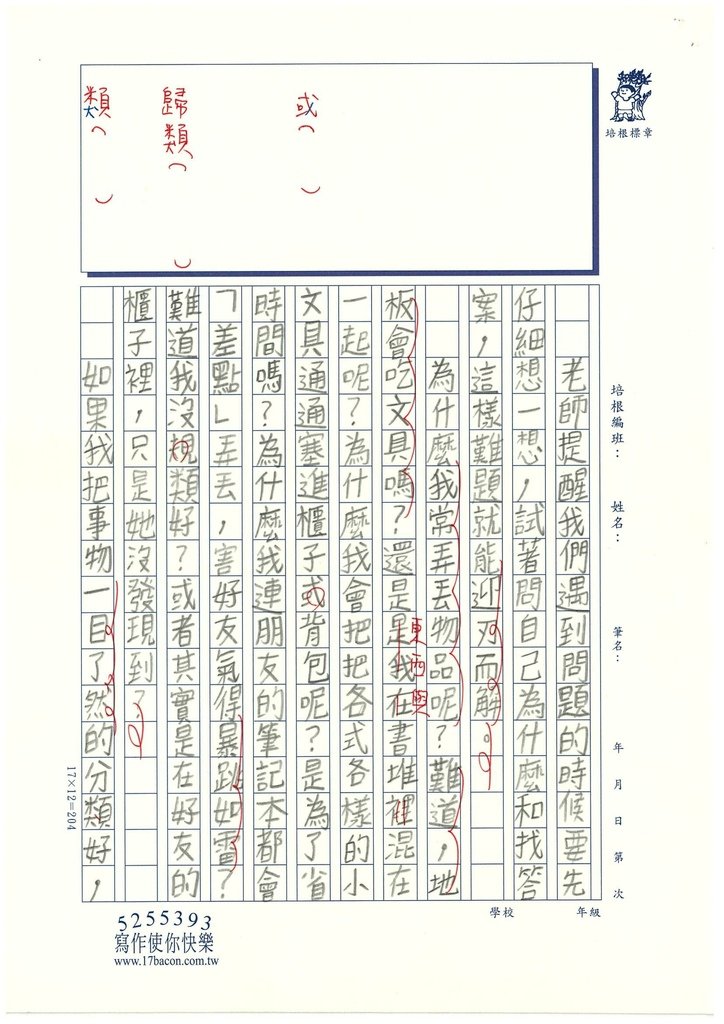 培根標章
或（　）
歸類（　）
類（　）
培根編班：
姓名：
筆名：
年　月　日第　次
學校　年級
老師提醒我們遇到問題的時候要先
仔細想一想，試著問自己為什麼和找答
案，這樣難題就能迎刃而解。
為什麼我常弄丟物品呢？難道，地
板會吃文具嗎？還是是我在書堆裡混在
東西與
一起呢？為什麼我會把把各式各樣的小
文具通通塞進櫃子或背包呢？是為了省
時間嗎？為什麼我連朋友的筆記本都會
「差點」弄丟，害好友氣得暴跳如雷？
難道我沒規類好？或者其實是在好友的
櫃子裡，只是她沒發現到？
如果我把事物一目了然的分類好，
17×12=204
5255393
寫作使你快樂
www.17bacon.com.tw